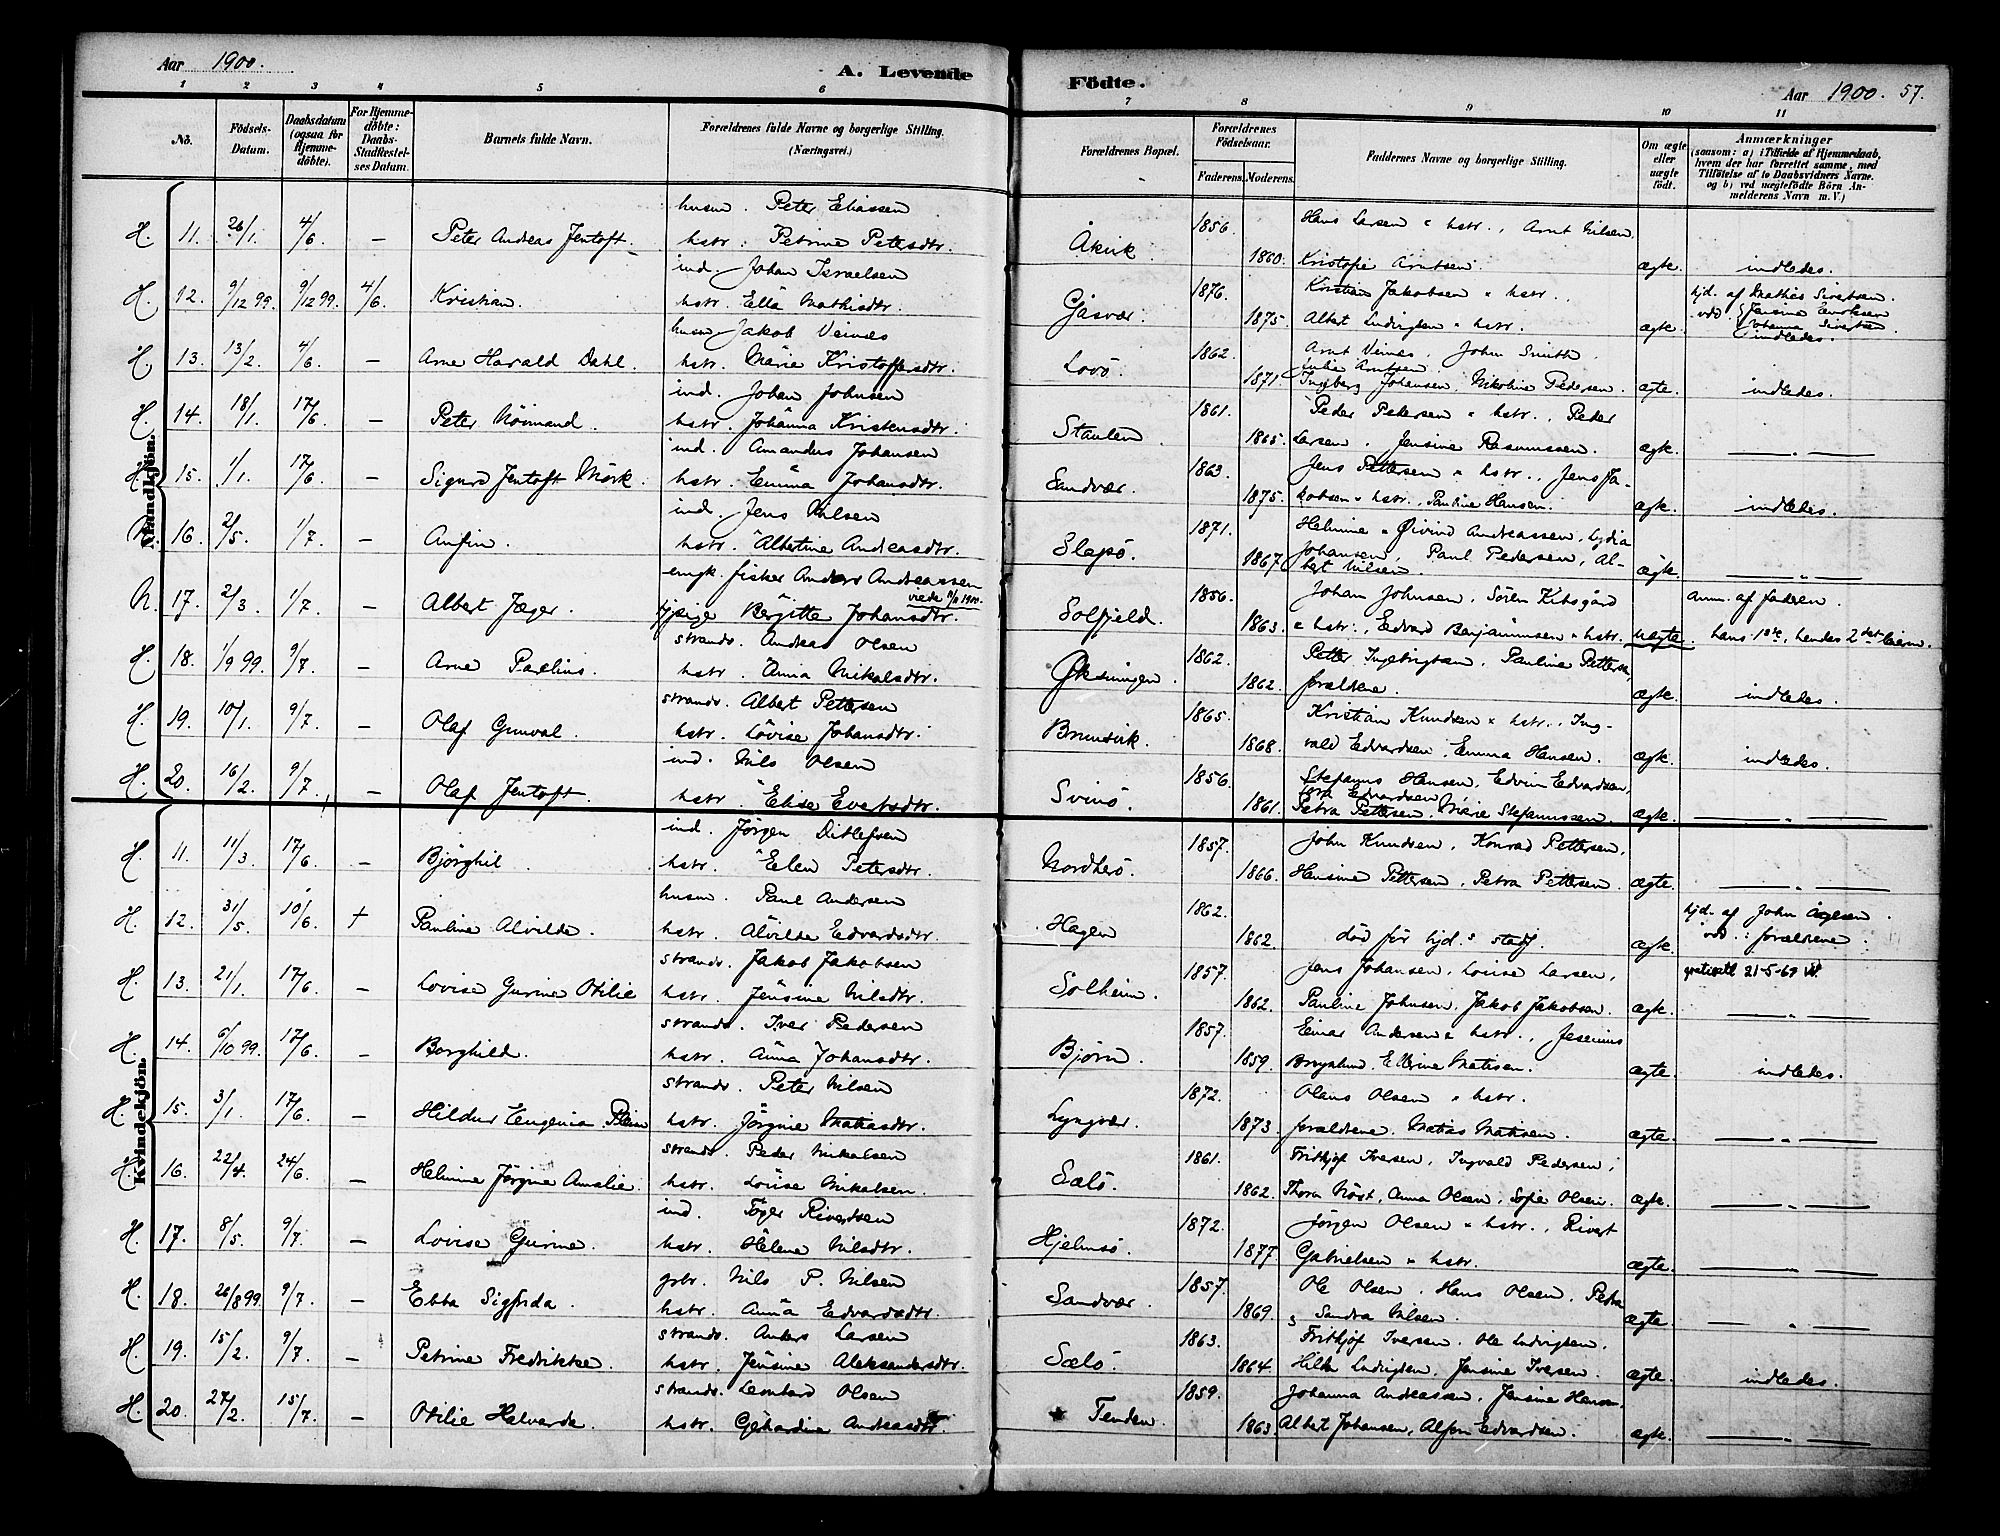 Aar 1900. A. Levende Födte. Aar 1900. 57.
1 2 3 4 5 6 7 8 9 10 11
No. Födsels-Datum. Daabsdatum (ogsaa for Hjemme-döbte). For Hjemme-döbte: Daabs-Stadfæstel-ses Datum. Barnets fulde Navn. Forældrenes fulde Navne og borgerlige Stilling. (Næringsvei.) Forældrenes Bopæl. Forældrenes Födselsaar. Faderens. Moderens. Faddernes Navne og borgerlige Stilling. Om ægte eller uægte født. Anmærkninger (saasom: a) i Tilfælde af Hjemmedaab, hvem der har forrettet samme, med Tilföielse af to Daabsvidners Navne, og b) ved uægtefödte Börn An-melderens Navn m. V.)
Mandkjön.
husm. Peter Eliassen 1856. Hans Larsen " hstr., Arnt Nilsen.
H. 11. 26/1. 4/6 — Peter Andreas Jentoft. hstr. Petrine Petersdtr. Åkvik 1860. Kristofie Arntsen. ægte. indledes.
ind. Johan Israelsen 1876. Kristian Jakobsen " hstr. hjd. af Mathis Sivertsen.
H. 12. 9/12 99. 9/12 99. 4/6 Kristian. hstr. Ella Mathisdtr. Gåsvær 1875. Albert Ludvigsen " hstr. ægte. vdd Johanna Sivertsen. indledes.
husm Jakob Veines 1862. Arnt Veines. John Smith.
H. 13. 13/2. 4/6. — Arne Harald Dahl. hstr. Marie Kristoffersdtr. Lovö. 1871 Julie Arntsen. Ingeborg Johansen. Nikoline Pedersen. ægte. indledes.
ind. Johan Johnsen 1861. Peder Petersen " hstr., Peder
H. 14. 18/1. 17/6. — Peter Nörmand. hstr. Johanna Kristensdtr. Staulen. 1865. Larsen. Jensine Rasmussen. ægte. — " —
ind. Amandus Johansen 1863. Jens Pettersen " hstr., Jens Ja-
H. 15. 1/1. 17/6. — Sigurd Jentoft Mörk. hstr. Emma Johansdtr. Sandvær. 1875. kobsen " hstr., Pauline Hansen. ægte. indledes.
ind. Jens Nilsen 1871. Helmine " Øivind Andreassen, Lydia
N. 16. 2/5. 1/7. — Anfin. hstr. Albertine Andreasdtr. Slapö. 1867. Johansen, Paul Pedersen, Al-bert Nilsen. ægte. — " —
ungk. fisker Anders Andreassen 1856. Johan Johnsen, Sören Kibsgård Anm. af faderen.
N. 17. 2/3. 1/7. — Albert Jæger. pige Bergitte Johansdtr. viede 11/11 1900. Solfjeld. 1863. " hstr., Edvard Benjaminsen " hstr. uægte. hans 1ste, hendes 2det leierm.
strands. Andreas Olsen 1862. Petter Ingebrigtsen. Pauline Petters.
H. 18. 1/9 99. 9/7 — Arne Paulius. hstr. Anna Mikalsdtr. Øksningen. 1862. forældrene. ægte. indledes.
strands. Albert Pettersen 1865. Kristian Knudsen " hstr., Ing-
H. 19. 10/1. 9/7. — Olaf Gunval. hstr. Lovise Johansdtr. Brunsvik. 1868. vald Edvardsen. Emma Hansen. ægte. indledes.
ind. Nils Olsen 1856. Stefanus Hansen. Edvin Edvardsen,
H. 20. 16/2. 9/7. — Olaf Jentoft. hstr. Elise Evertsdtr. Svinö. 1861. Tora Edvardsen, Petra Pettersen. Marie Stefanussen. ægte. — " —
Kvindekjön.
ind. Jörgen Ditlefsen 1857. John Knudsen, Konrad Pettersen,
H. 11. 11/3. 17/6. — Björghil. hstr. Elen Petersdtr. Nordherö. 1866. Hansine Pettersen. Petra Pettersen. ægte. — " —
husm. Paul Andersen 1862. hjd. af John Ågesen.
H. 12. 31/5. 10/6. + Pauline Alvilde. hstr. Alvilde Edvardsdtr. Hagen 1862. död för hjd.s stadf. ægte. vdd: forældrene.
strands. Jakob Jakobsen 1857. Jens Johansen. Lovise Larsen, 21-5-69
H. 13. 21/1. 17/6. — Lovise Gurine Otilie hstr. Jensine Nilsdtr. Solheim. 1862. Pauline Johnsen. Jakob Jakobsen. ægte. — " —
strands. Iver Pedersen 1857. Einar Andersen " hstr., Jesenius
H. 14. 9/10 99. 17/6. — Borghild. hstr. Anna Johansdtr. Bjørn. 1859. Brynslund. Elerine Matisen. ægte. indledes.
strands. Peter Nilsen 1872. Olaus Olsen " hstr.
H. 15. 3/1. 17/6. — Hildur Eugenia hstr. Jörgine Matiasdtr. Lyngvær. 1873. forældrene. Matias Matisen. ægte. — " —
strands. Peder Mikalsen 1861. Frithjof Iversen, Ingvald Pedersen,
H. 16. 22/4. 24/6. — Helmine Jörgine Amalie. hstr. Lovise Mikalsen. Sælö. 1862. Thora Möst, Anna Olsen, Sofie Olsen. ægte. — " —
ind. Töger Rivertsen 1872. Jörgen Olsen " hstr., Rivert
H. 17. 8/5. 9/7. — Lovise Gurine. hstr. Helene Nilsdtr. Hjelmsö. 1877. Gabrielsen " hstr. ægte. — " —
gbr. Nils P. Nilsen 1857. Ole Olsen. Hans Olsen. Petra
H. 18. 26/8 99. 9/7. — Ebba Sigfrida. hstr. Anna Edvardsdtr. Sandvær. 1869. " Sandra Nilsen. ægte. — " —
strands. Anders Larsen 1863. Frithjof Iversen. Ole Ludvigsen.
H. 19. 15/2. 9/7. — Petrine Fredrikke. hstr. Jensine Aleksandersdtr. Sælö. 1864. Hilda Ludvigsen, Jensine Iversen. ægte. indledes.
strands. Leonhard Olsen 1859. Johanna Andreassen. Jensine Hansen.
H. 20. 27/2. 15/7. — Otilie Halvarda. hstr. Gjerhardine Andreasdtr. Tenden. 1863. Albert Johansen, Alfon Edvardsen. ægte. — " —